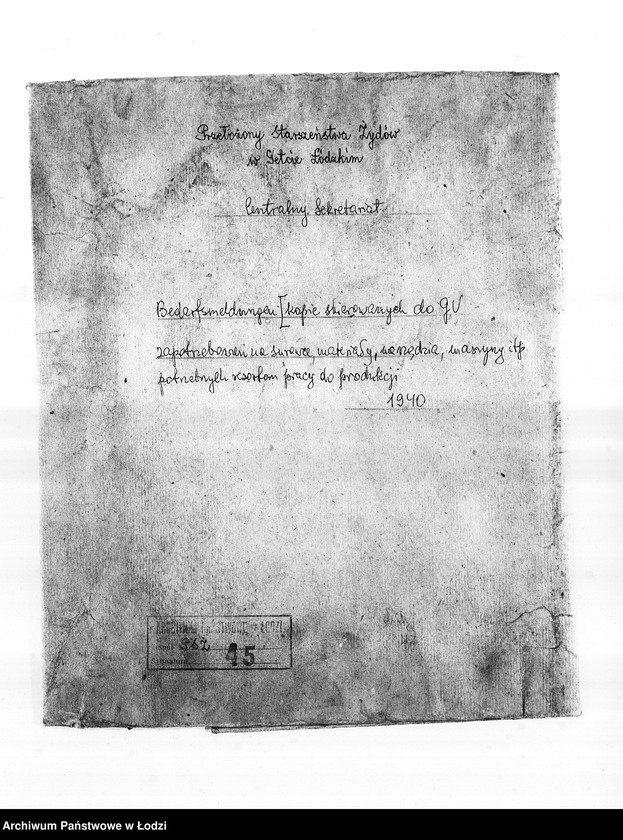 Przełożony Starszeństwa Żydów
w Getcie Łódzkim
Centralny Sekretariat
Bedarfsmeldungen [kopie skierowanych do GV
zapotrzebowań na surowce, materiały, narzędzia, maszyny itp
potrzebnych resortom pracy do produkcji
1940
ARCHIWUM PAŃSTWOWE w ŁODZI
PSŻ
Sygnatura 15
Archiwum Państwowe w Łodzi